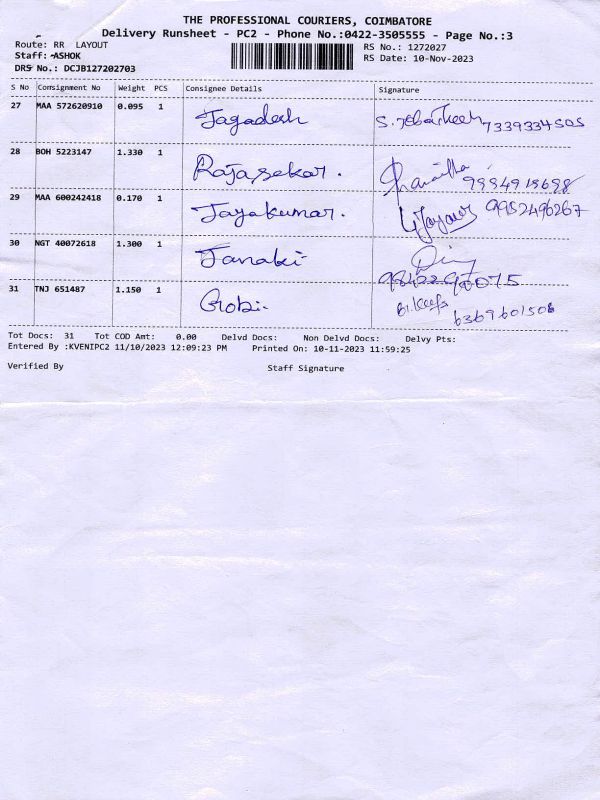 THE PROFESSIONAL COURIERS, COIMBATORE
Delivery Runsheet - PC2 - Phone No.:0422-3505555 - Page No.:3
Route: RR LAYOUT
RS No.: 1272027
Staff: ASHOK
RS Date: 10-Nov-2023
DRS No.: DCJB127202703
S No Consignment No Weight PCS Consignee Details Signature
27 MAA 572620910 0.095 1 Jagadesh 7339334505
28 BOH 5223147 1.330 1 Rajasekar. 9994918698
29 MAA 600242418 0.170 1 Jayakumar. 9952496267
30 NGT 40072618 1.300 1 Janaki
31 TNJ 651487 1.150 1 Gobi. 6369601508
Tot Docs: 31 Tot COD Amt: 0.00 Delvd Docs: Non Delvd Docs: Delvy Pts:
Entered By :KVENIPC2 11/10/2023 12:09:23 PM Printed On: 10-11-2023 11:59:25
Verified By Staff Signature